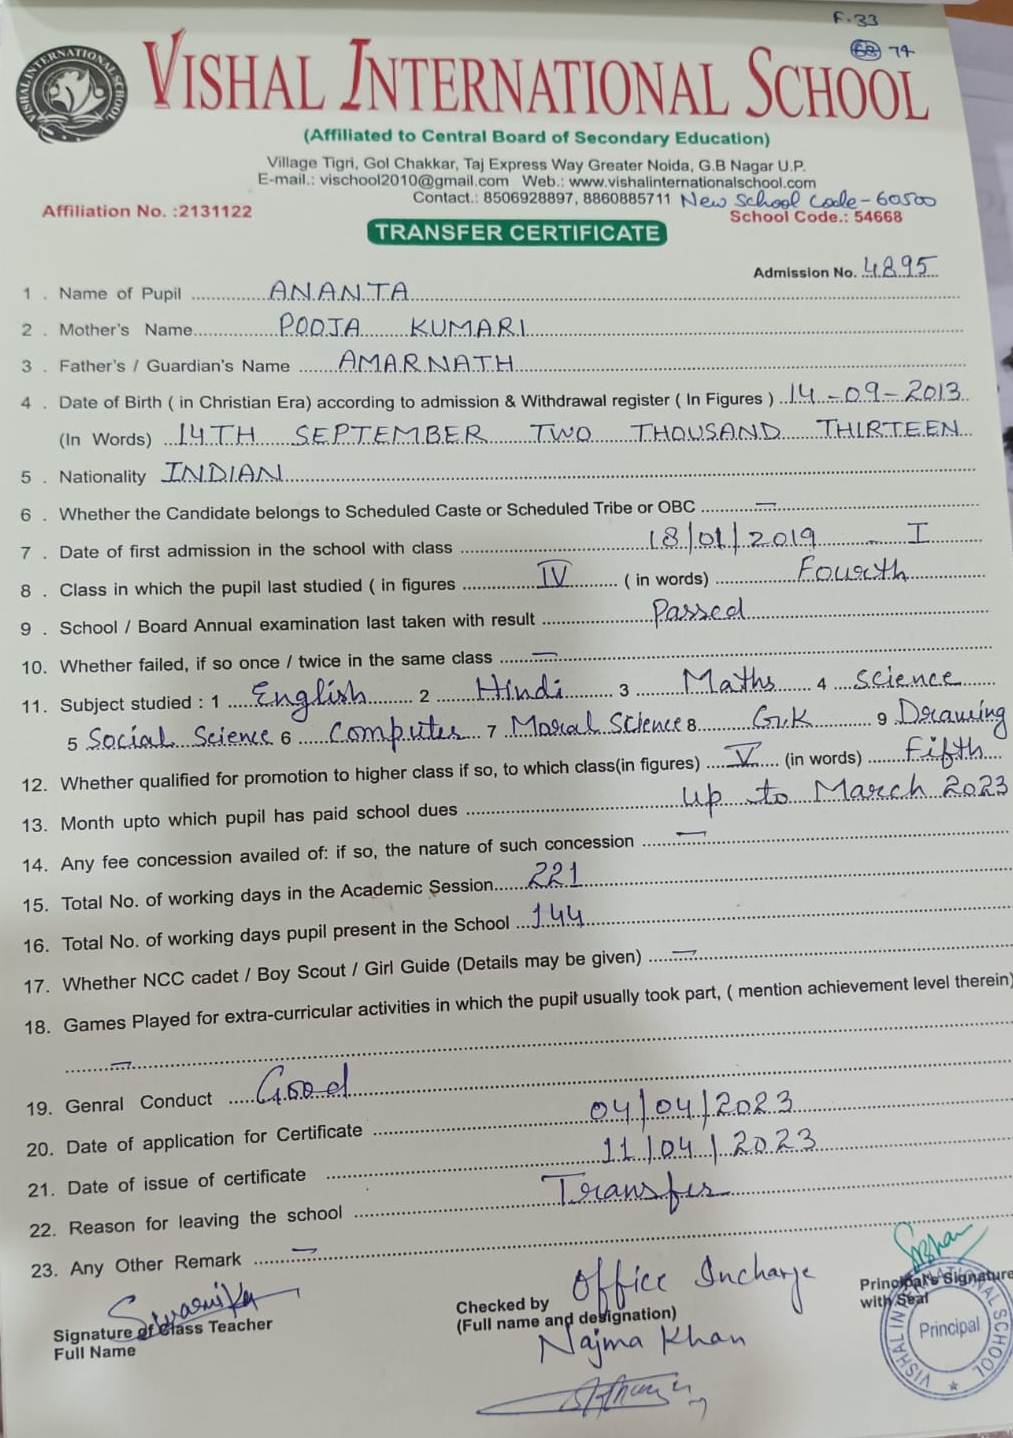 F.33
68 74
VISHAL INTERNATIONAL SCHOOL
VISHAL INTERNATIONAL SCHOOL
(Affiliated to Central Board of Secondary Education)
Village Tigri, Gol Chakkar, Taj Express Way Greater Noida, G.B Nagar U.P.
E-mail.: vischool2010@gmail.com Web.: www.vishalinternationalschool.com
Contact.: 8506928897, 8860885711 New School Code - 60500
Affiliation No. :2131122 School Code.: 54668
TRANSFER CERTIFICATE
Admission No. 4895
1 . Name of Pupil ANANTA
2 . Mother's Name POOJA KUMARI
3 . Father's / Guardian's Name AMARNATH
4 . Date of Birth ( in Christian Era) according to admission & Withdrawal register ( In Figures ) 14-09-2013
(In Words) 14TH SEPTEMBER TWO THOUSAND THIRTEEN
5 . Nationality INDIAN
6 . Whether the Candidate belongs to Scheduled Caste or Scheduled Tribe or OBC —
7 . Date of first admission in the school with class 18/01/2019 - I
8 . Class in which the pupil last studied ( in figures IV ( in words) Fourth
9 . School / Board Annual examination last taken with result Passed
10. Whether failed, if so once / twice in the same class —
11. Subject studied : 1 English 2 Hindi 3 Maths 4 Science
5 Social Science 6 Computer 7 Moral Science 8 G.K 9 Drawing
12. Whether qualified for promotion to higher class if so, to which class(in figures) V (in words) Fifth
13. Month upto which pupil has paid school dues up to March 2023
14. Any fee concession availed of: if so, the nature of such concession —
15. Total No. of working days in the Academic Session 221
16. Total No. of working days pupil present in the School 144
17. Whether NCC cadet / Boy Scout / Girl Guide (Details may be given) —
18. Games Played for extra-curricular activities in which the pupil usually took part, ( mention achievement level therein)
—
19. Genral Conduct Good
20. Date of application for Certificate 04/04/2023
21. Date of issue of certificate 11/04/2023
22. Reason for leaving the school Transfer
23. Any Other Remark —
Swarnika
Signature of Class Teacher
Full Name
Office Incharge
Checked by
(Full name and designation)
Najma Khan
Principal's Signature
with Seal
VISHAL INTERNATIONAL SCHOOL
Principal